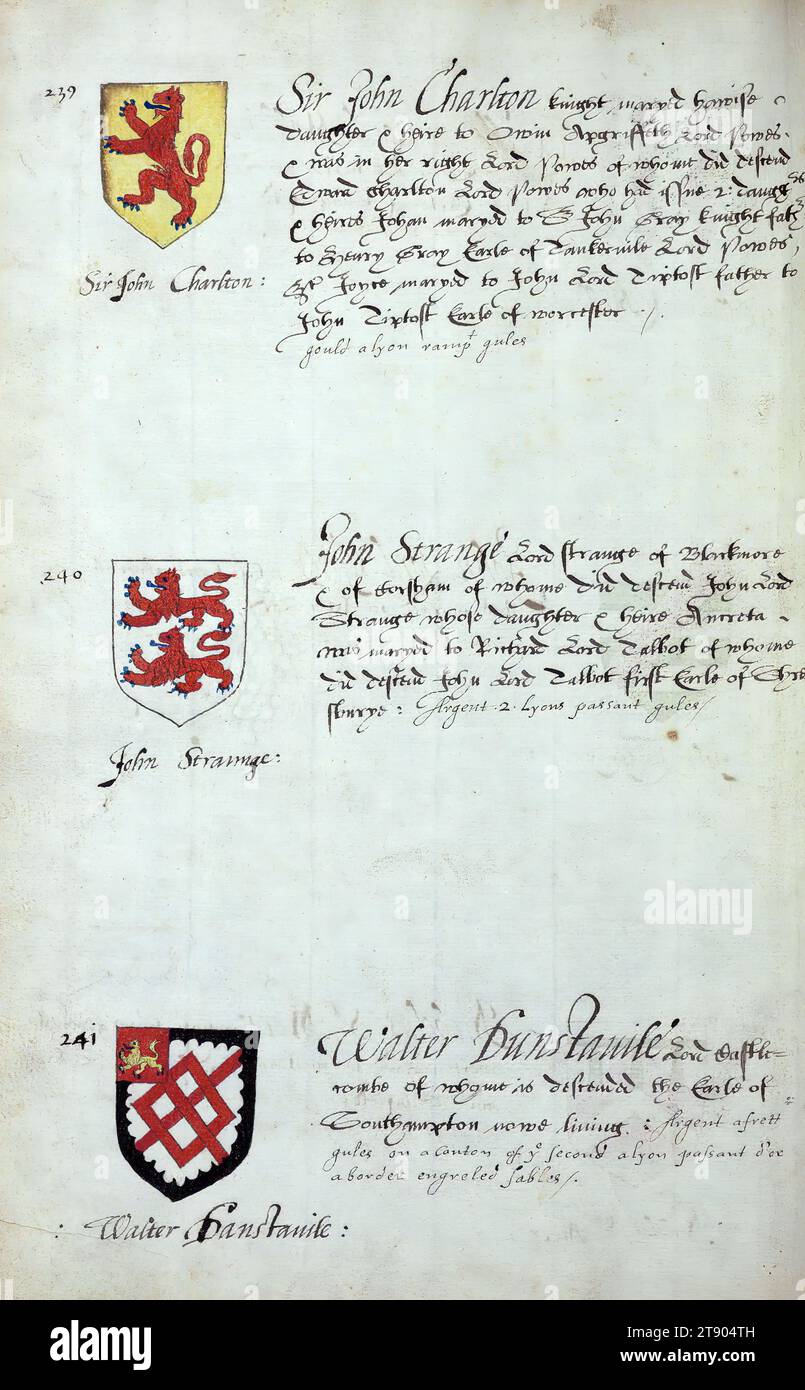 239
Sir John Charlton knight maryed hawise
daughter & heire to Owin Apgriffeth Lord Powes
& was in her right Lord Powes of whome did descend
Edward Charlton Lord Powes who had issue 2: daugg
& heires Johan maryed to Sr John Gray knight fath
to Henry Gray Earle of Tankervile Lord Powes,
& Joyce maryed to John Lord Tiptost father to
John Tiptost Earle of worcester
gould a lyon rampt gules
Sir John Charlton:
240
John Strange Lord Strange of Blackmore
& of Corsham of whome did descend John Lord
Strange whose daughter & heire Ancreta
was maryed to Richard Lord Talbot of whome
did descend John Lord Talbot first Earle of Shre
sburye: Argent .2. Lyons passant gules
John Straunge:
241
Walter Dunstavile Lord Castle=
combe of whome is descended the Earle of
Southampton nowe living: Argent a frett
gules on a canton of ye second a lyon passant d'or
a border engreled sables
: Walter Danstavile:
alamy
alamy
Image ID: 2T904TH
www.alamy.com